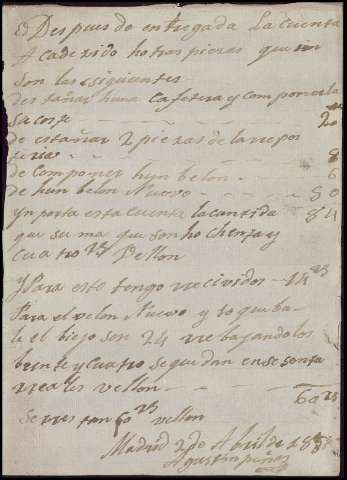 Despues de entregada La cuenta
A cadezido hotras piezas que son
son las siguientes
destañar huna Cafetera y componerla
su coste 20
de estañar 2 piezas de la repos
teria 8
de componer hun belon 6
de hun belon Nuevo 50
ynporta esta cuenta la cantida 84
que suma que son hochenta y
cuatro rs Vellon
y Para esto tengo rrecividos
Para el velon Nuevo y lo que ba
le el biejo son 24 rrebajandolos
beinte y cuatro se quedan en sesenta
rreales vellon 60 rs
se rres tan 60 rs vellon
Madrid 2 de Abril de
Agustin